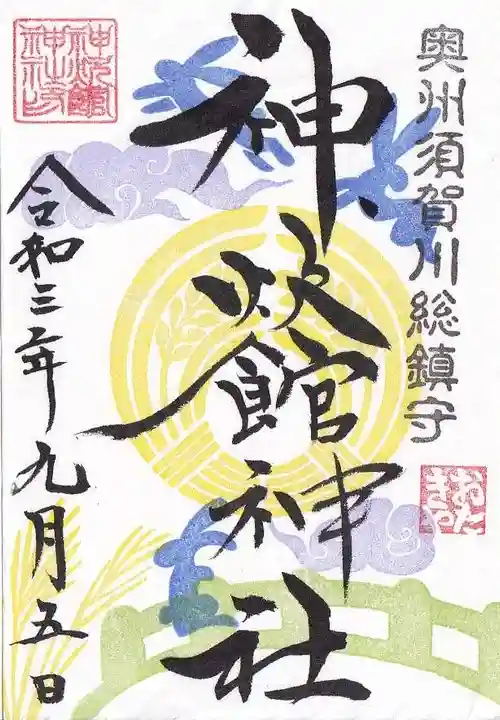 奥州須賀川総鎮守
神炊館神社
令和三年九月五日
神炊館神社
おたきや